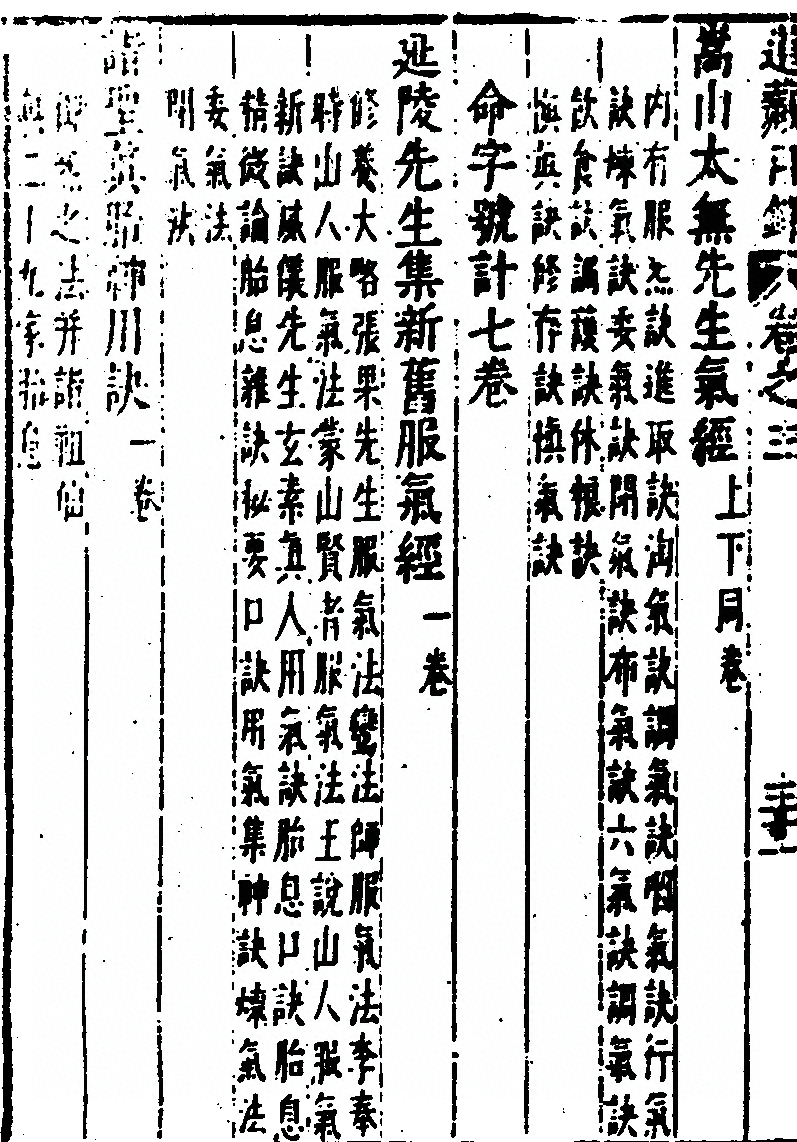 道藏目錄 卷之三
嵩山太無先生氣經上下同卷
内有服氣訣進取訣淘氣訣調氣訣咽氣訣行氣
訣煉氣訣委氣訣閉氣訣布氣訣六氣訣調氣訣
飲食訣調護訣休糧訣
慎真訣修存訣慎氣訣
命字號計七卷
延陵先生集新舊服氣經一卷
修養大略張果先生服氣法鸞法師服氣法李奉
時山人服氣法蒙山賢者服氣法王說山人服氣
新訣威儀先生玄素真人用氣訣胎息口訣胎息
精微論胎息雜訣秘要口訣用氣集神訣煉氣法
委氣法
閉氣法
諸聖真胎神用訣一卷
之法并諸祖仙
二十九家胎息